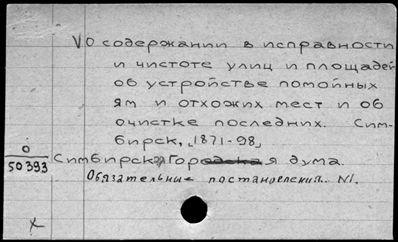 √О содержании в исправности
и чистоте улиц и площадей
об устройстве помойных
ям и отхожих мест и об
очистке последних. Сим-
бирск, [1871-98]
О
50 393
Симбирск. Городская дума.
Обязательные постановления. №1.
х